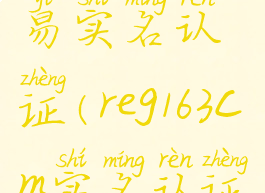 yì shí míng rèn
易实名认
zhèng
证(reg163c
shí míng rèn zhèng
m实名认证